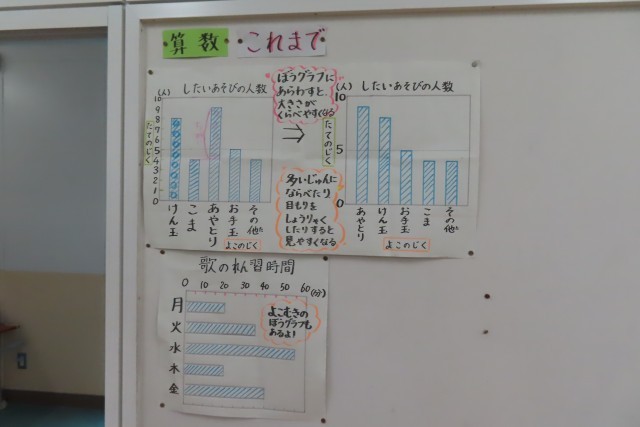 算数 これまで
したいあそびの人数
(人)
10
9
8
7
6
5
4
3
2
1
0
たてのじく
けん玉
こま
あやとり
お手玉
その他
よこのじく
ぼうグラフに
あらわすと、
大きさが
くらべやすくなる
⇒
多いじゅんに
ならべたり
目もりを
しょうりゃく
したりすると
見やすくなる
したいあそびの人数
(人)
10
5
0
たてのじく
あやとり
けん玉
お手玉
こま
その他
よこのじく
歌のれん習時間
0 10 20 30 40 50 60 (分)
月
火
水
木
金
よこむきの
ぼうグラフも
あるよ!